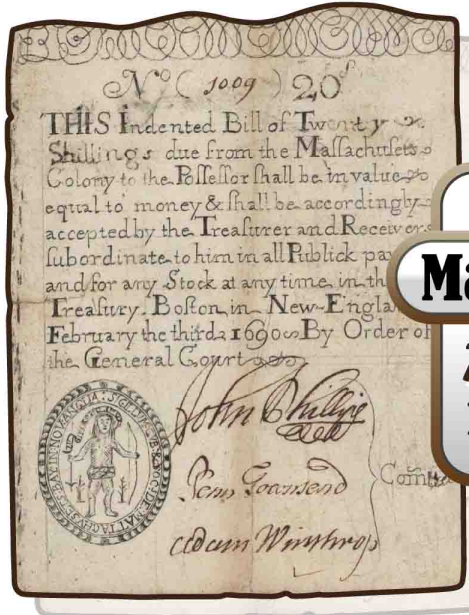 No ( 1009 ) 20s
THIS Indented Bill of Twenty
Shillings due from the Maſſachuſets
Colony to the Poſſeſſor ſhall be in value
equal to money & ſhall be accordingly
accepted by the Treaſurer and Receivers
ſubordinate to him in all Publick pay
and for any Stock at any time in the
Treaſury. Boſton in New-Engla
February the third 1690 By Order of
the General Court
John Phillips
Penn Townsend
Adam Winthrop
Com
Ma